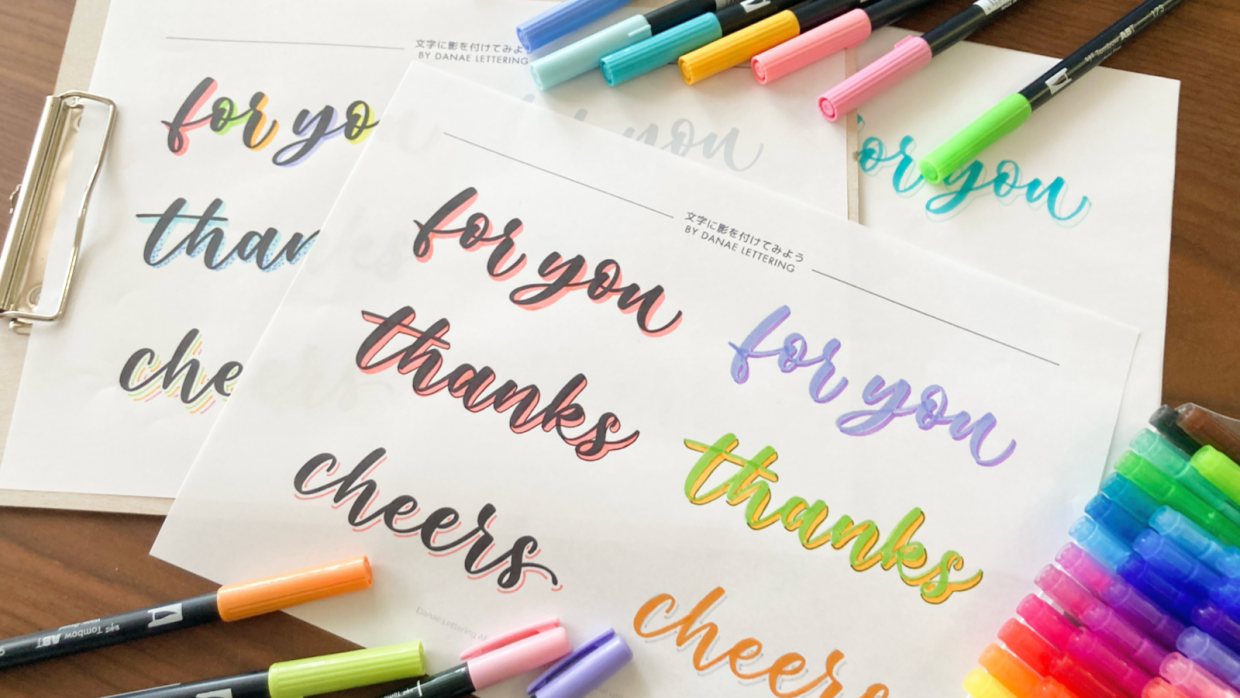 文字に影を付けてみよう
BY DANAE LETTERING
for you
for you
文字に影を付けてみよう
BY DANAE LETTERING
for you
for you
for you
thanks
thanks
cheers
Tombow ABT
Tombow ABT
Danae Lettering